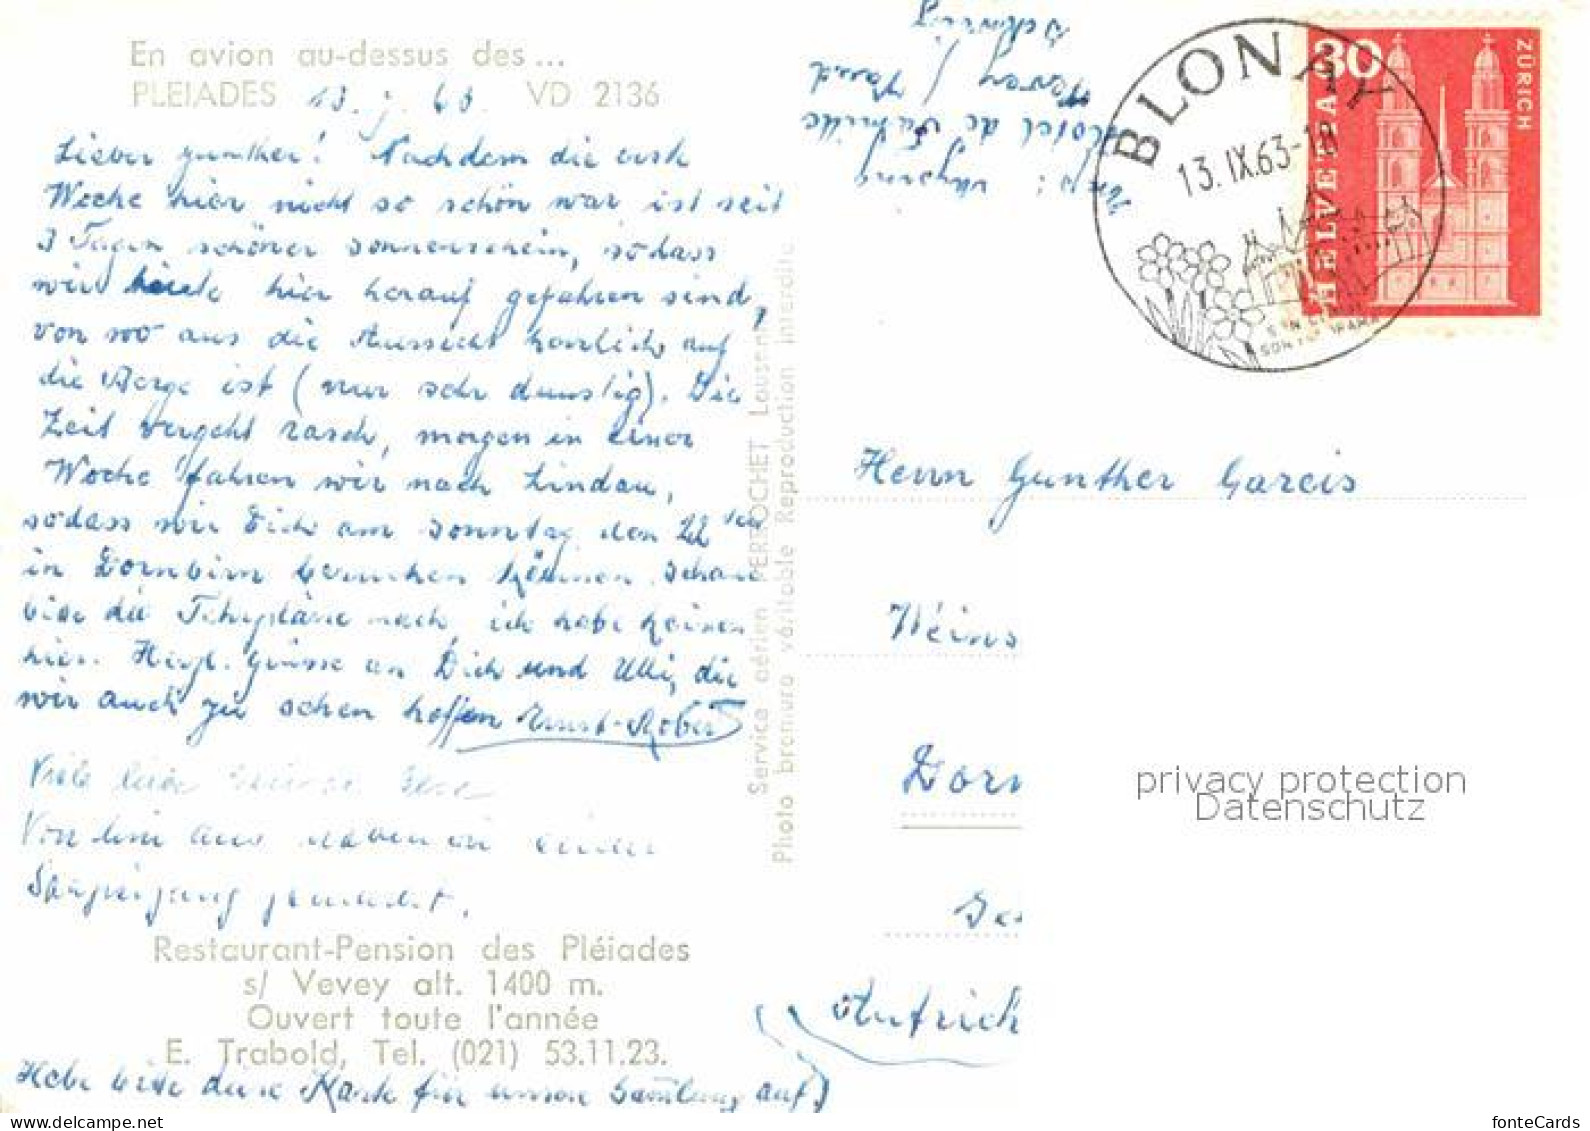 En avion au-dessus des...
PLEIADES VD 2136
13. 9. 63.
Lieber Gunther! Nachdem die erste
Woche hier nicht so schön war ist seit
3 Tagen schöner Sonnenschein, sodass
wir heute hier herauf gefahren sind,
von wo aus die Aussicht herrlich auf
die Berge ist (nur sehr dunstig). Die
Zeit vergeht rasch, morgen in einer
Woche fahren wir nach Lindau,
sodass wir Dich am Sonntag den 22ten
in Dornbirn besuchen können. Schau
bitte die Fahrpläne nach, ich habe keinen
hier. Herzl. Grüsse an Dich und Ulli, die
wir auch zu sehen hoffen Ernst-Robert
Viele liebe
Von hier aus haben wir einen
Spaziergang gemacht.
Restaurant-Pension des Pléiades
s/ Vevey alt. 1400 m.
Ouvert toute l'année
E. Trabold, Tel. (021) 53.11.23.
Hebe bitte diese Karte für unsere Samlung auf!
Service aérien PERROCHET Lausanne
Photo bromuro véritable Reproduction interdite
Hotel de Famille
Vevey / Vaud
Schweiz
BLONAY
13.IX.63-18
SON
HELVETIA
30
ZÜRICH
Herrn Gunther Gareis
Weins
Dorn
Autrich
privacy protection
Datenschutz
www.delcampe.net
fonteCards